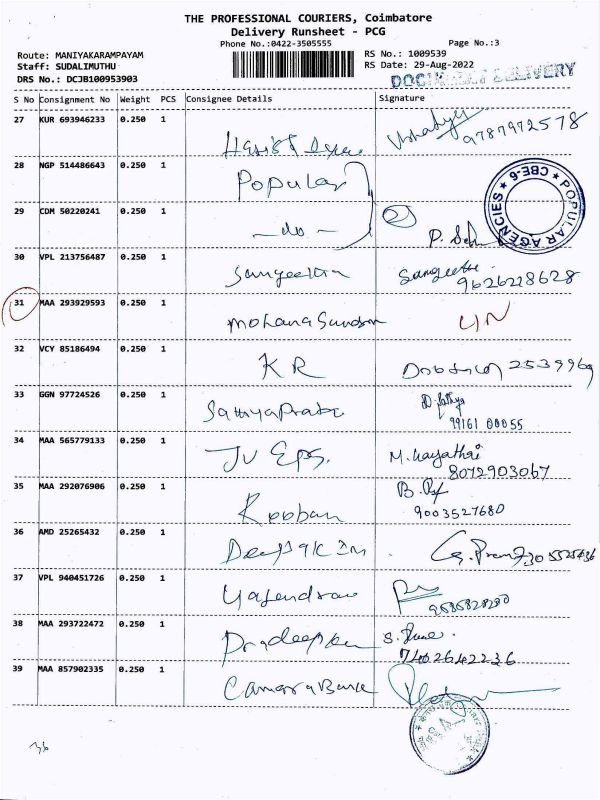 THE PROFESSIONAL COURIERS, Coimbatore
Delivery Runsheet - PCG
Phone No.:0422-3505555
Page No.:3
Route: MANIYAKARAMPAYAM
RS No.: 1009539
Staff: SUDALIMUTHU
RS Date: 29-Aug-2022
DRS No.: DCJB100953903
S No Consignment No Weight PCS Consignee Details Signature
27 KUR 693946233 0.250 1
9787972578
28 NGP 514486643 0.250 1
Popular
29 CDM 50220241 0.250 1
-do-
POPULAR AGENCIES ★ CBE-6 ★
30 VPL 213756487 0.250 1
Sangeetha Sangeetha
9626228628
31 MAA 293929593 0.250 1
Mohana Sundaram
32 VCY 85186494 0.250 1
KR 2539969
33 GGN 97724526 0.250 1
Sathyapraba
99161 00055
34 MAA 565779133 0.250 1
8072903067
35 MAA 292076906 0.250 1
Rooban
9003527680
36 AMD 25265432 0.250 1
37 VPL 940451726 0.250 1
38 MAA 293722472 0.250 1
7402642236
39 MAA 857902335 0.250 1
Canara Bank
36